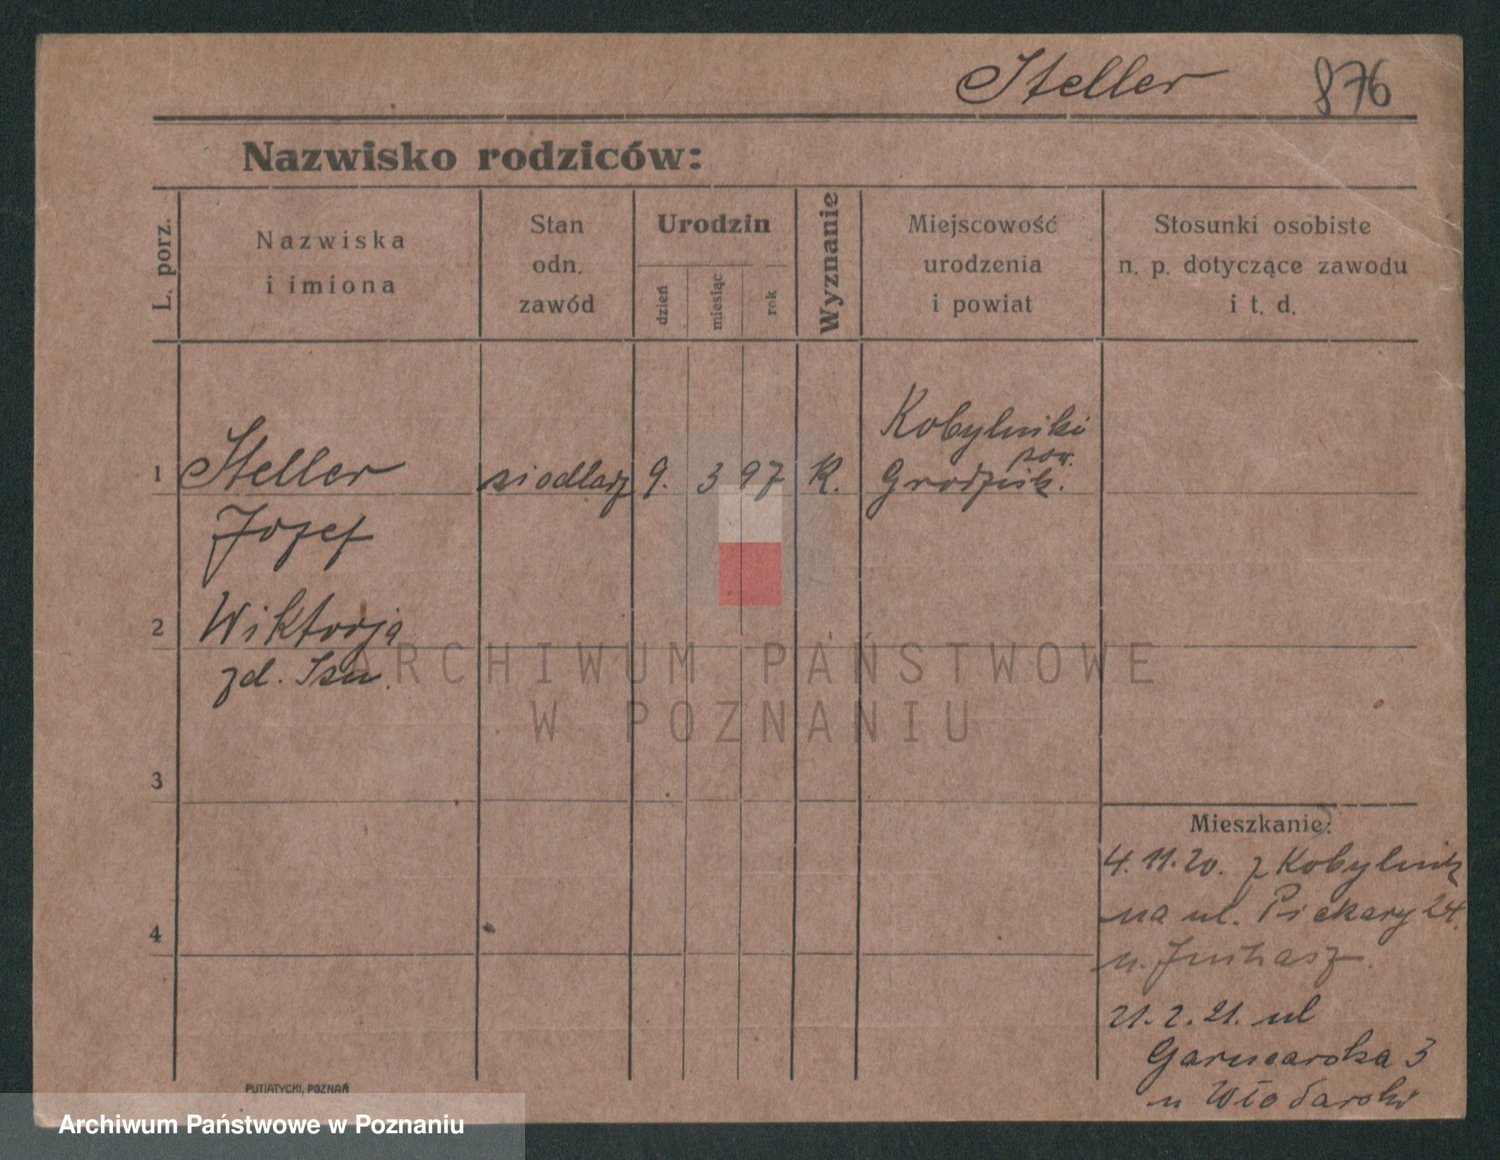 Steller 876
Nazwisko rodziców:
L. porz.
Nazwiska
i imiona
Stan
odn.
zawód
Urodzin
dzień
miesiąc
rok
Wyznanie
Miejscowość
urodzenia
i powiat
Stosunki osobiste
n. p. dotyczące zawodu
i t. d.
Kobylniki
pow.
1 Steller siodlarz 9. 3 97 K. Grodzisk.
Jozef
2 Wiktorja
zd.
3
4
Mieszkanie:
4.11.20. z Kobylnik
na ul. Piekary 24.
u.
21.2.21. ul
Garncarska 3
u Włodarski
PUTIATYCKI, POZNAŃ
ARCHIWUM PAŃSTWOWE
W POZNANIU
Archiwum Państwowe w Poznaniu